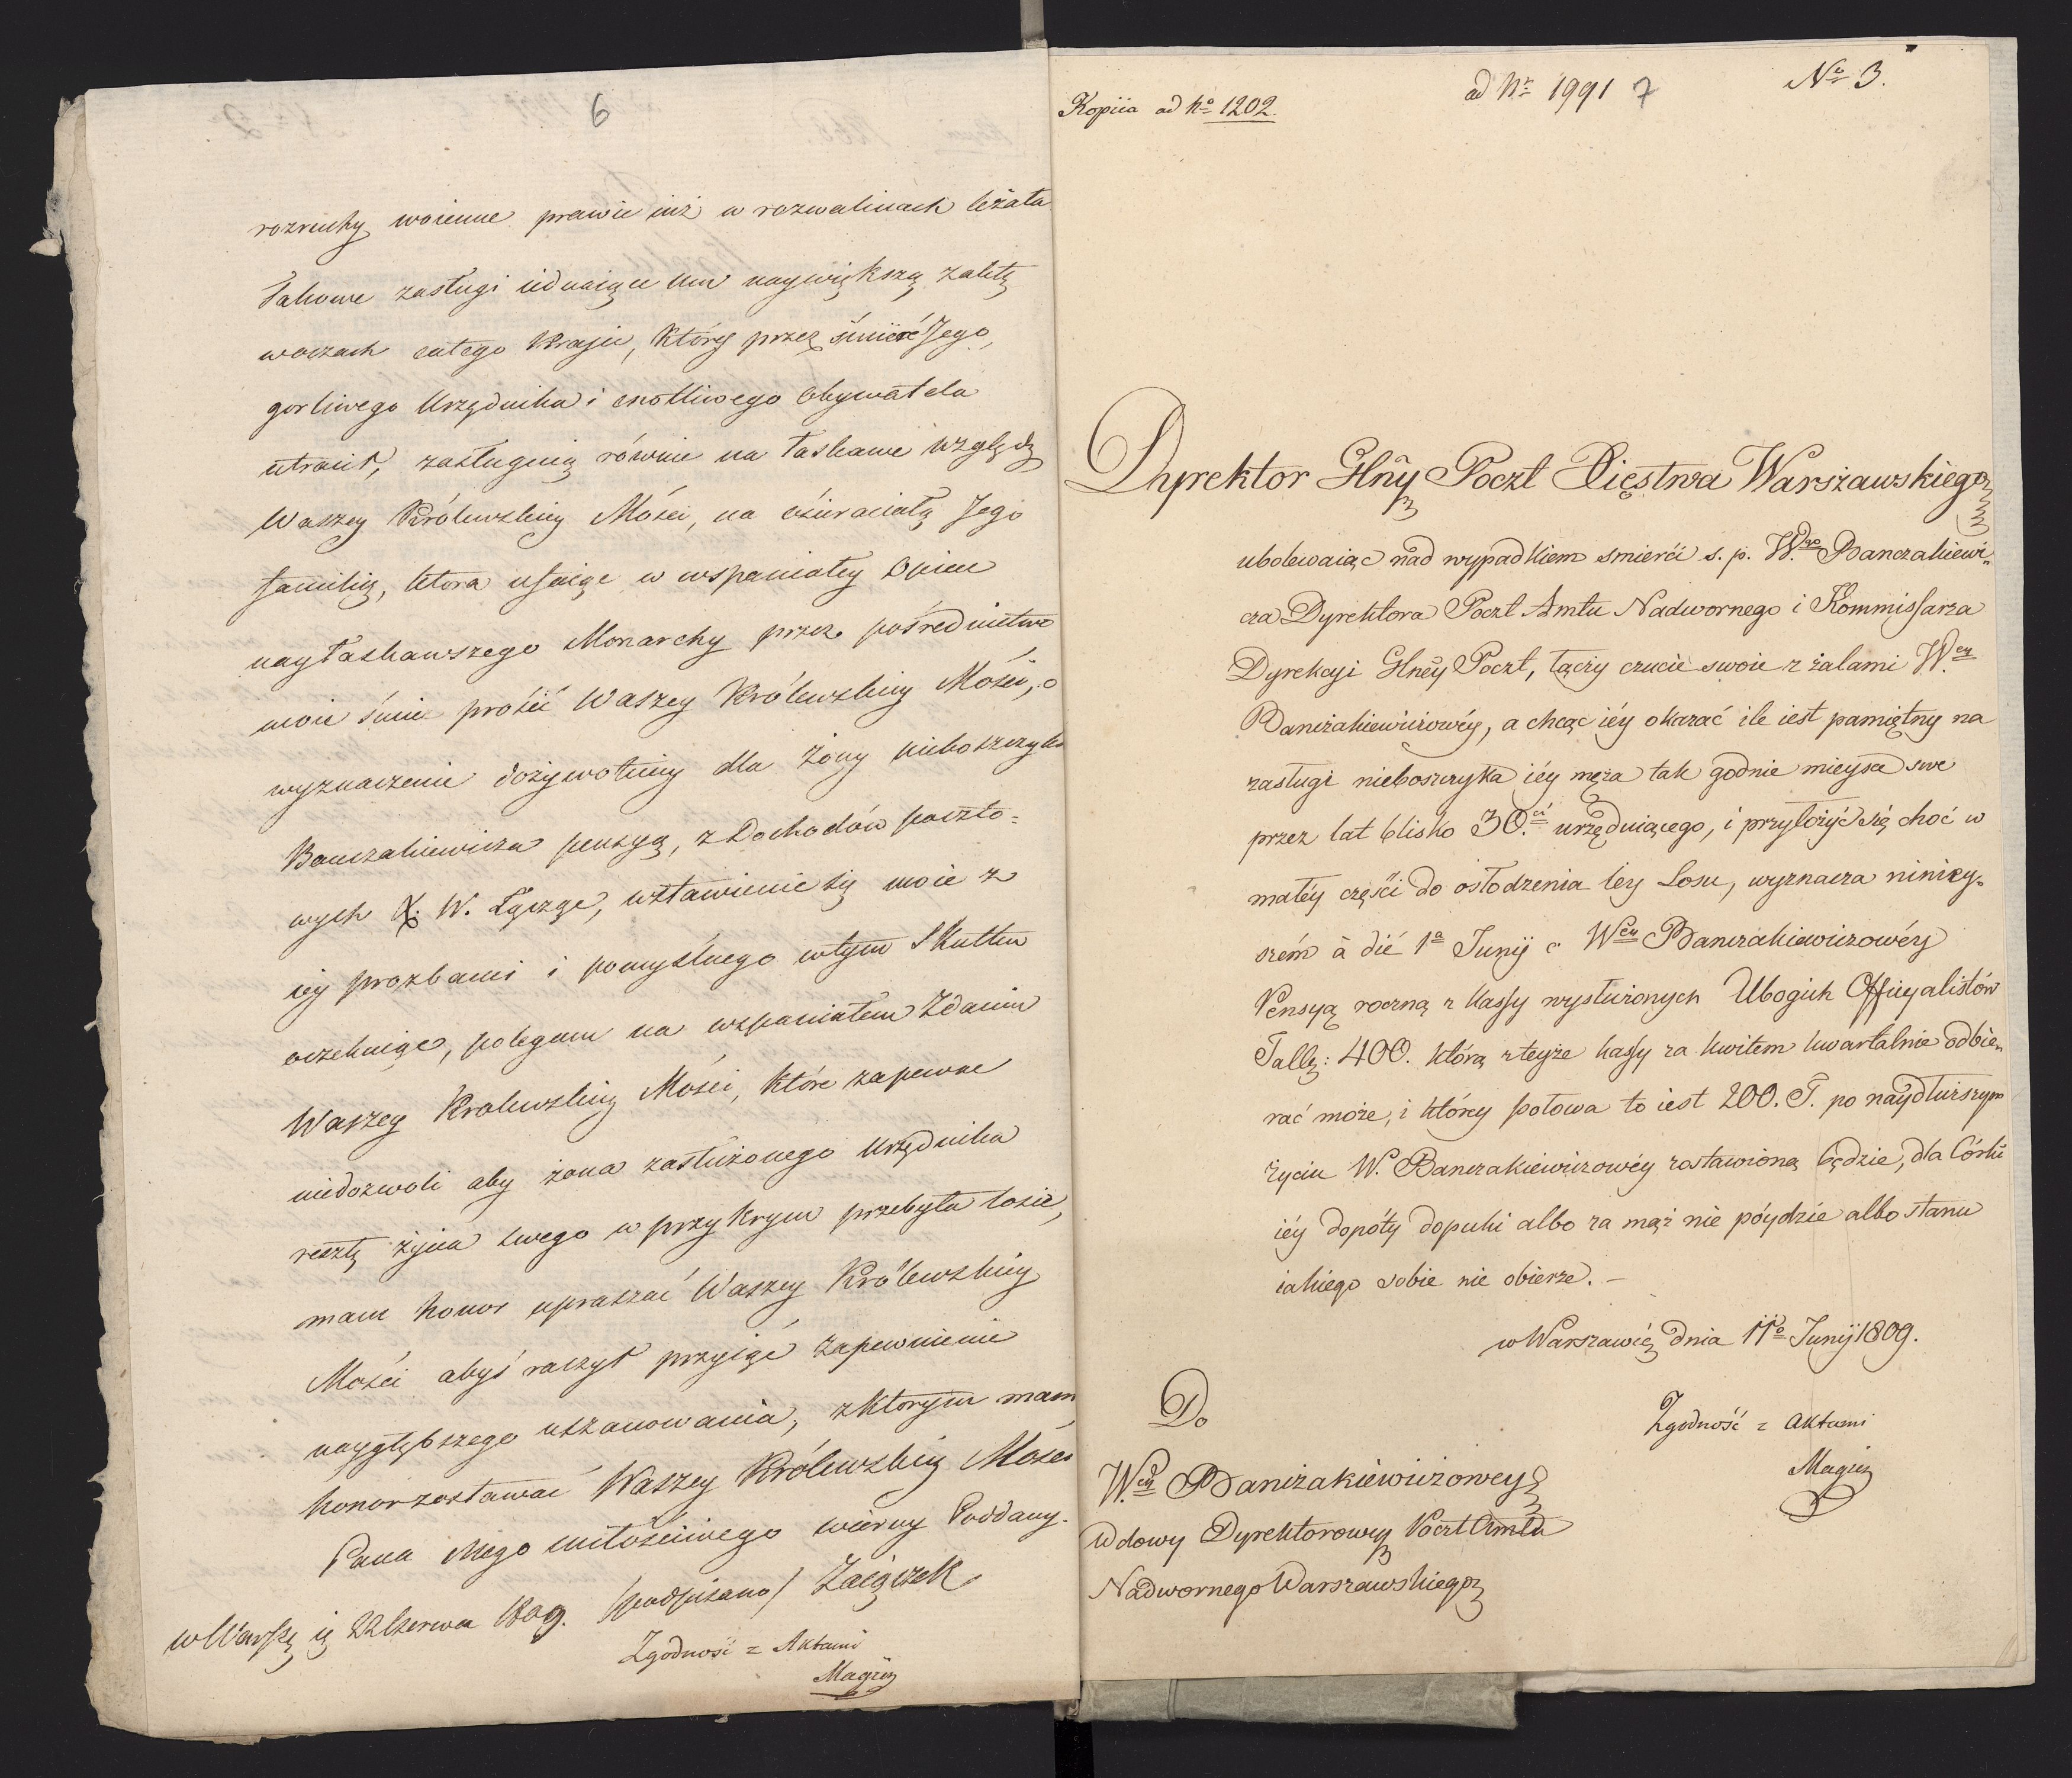 6
rozruchy woienne prawie iuż w rozwalinach leżała
Takowe zasługi iednaiące mu naywiększą zaletę
woczach całego Kraju, który przez śmierć Jego,
gorliwego Urzędnika i cnotliwego Obywatela
utracił, zasługuią równie na łaskawe względy
Waszey Królewskiey Mości, na osieraciałą Jego
familię, ktora ufaiąc w wspaniałey Opiece
nayłaskawszego Monarchy przez pośrednictwo
moie śmie prosić Waszey Królewskiey Mości, o
wyznaczenie dożywotniey dla Żony nieboszczyka
Banczakiewicza pensyą, z Dochodów poczto=
wych X. W. Łącząc, wstawienie się moie z
iey prozbami i pomyślnego wtym Skutku
oczekuiąc, polegam na wspaniałem Zdaniu
Waszey Krolewskiey Mości, które zapewne
niedozwoli aby żona zasłużonego Urzędnika
resztę życia swego w przykrym przebyła losie,
mam honor upraszać Waszey Królewskiey
Mości abyś raczył przyiąć zapewnienie
naygłębszego uszanowania, zktorym mam
honor zostawać Waszey Królewskiey Mości
Pana Mego miłościwego wierny Poddany.
w Warsz. 22 Czerwca 1809. /podpisano/ Zaiączek.
Zgodność z Aktami
Kopiia ad No 1202.
ad Nr 1991
7
No 3.
Dyrektor Glny Poczt Xięstwa Warszawskiego
ubolewaiąc nad wypadkiem smierći s. p. Wgo Banczakiewi-
cza Dyrektora Poczt Amtu Nadwornego i Kommissarza
Dyrekcyi Glney Poczt, łączy czucie swoie z żalami Wey
Banczakiewiczowéy, a chcąc iéy okazać ile iest pamiętny na
zasługi nieboszczyka iéy męża tak godnie mieysce swe
przez lat blisko 30.ci urzęduiącego, i przyłożyć się choć w
małéy części do osłodzenia Iey Losu, wyznacza niniey-
szém à die 1a Junij c. Wey Banczakiewiczowéy
Pensyą roczną z kassy wysłużonych Ubogich Officyalistów
Tally: 400. którą zteyże kassy za kwitem kwartalnie odbie-
rać może, i którey połowa to iest 200. T. po náydłuższym
życiu W. Banczakiewiczowéy zostawioną będzie, dla Córki
iéy dopóty dopuki albo za mąż nie póydzie albo stanu
iakiego sobie nie obierze. –
w Warszawie dnia 11o Junij 1809.
Zgodność z Aktami
Do
Wey Banczakiewiczowey
Wdowy Dyrektorowey Poczt Amtu
Nadwornego Warszawskiego